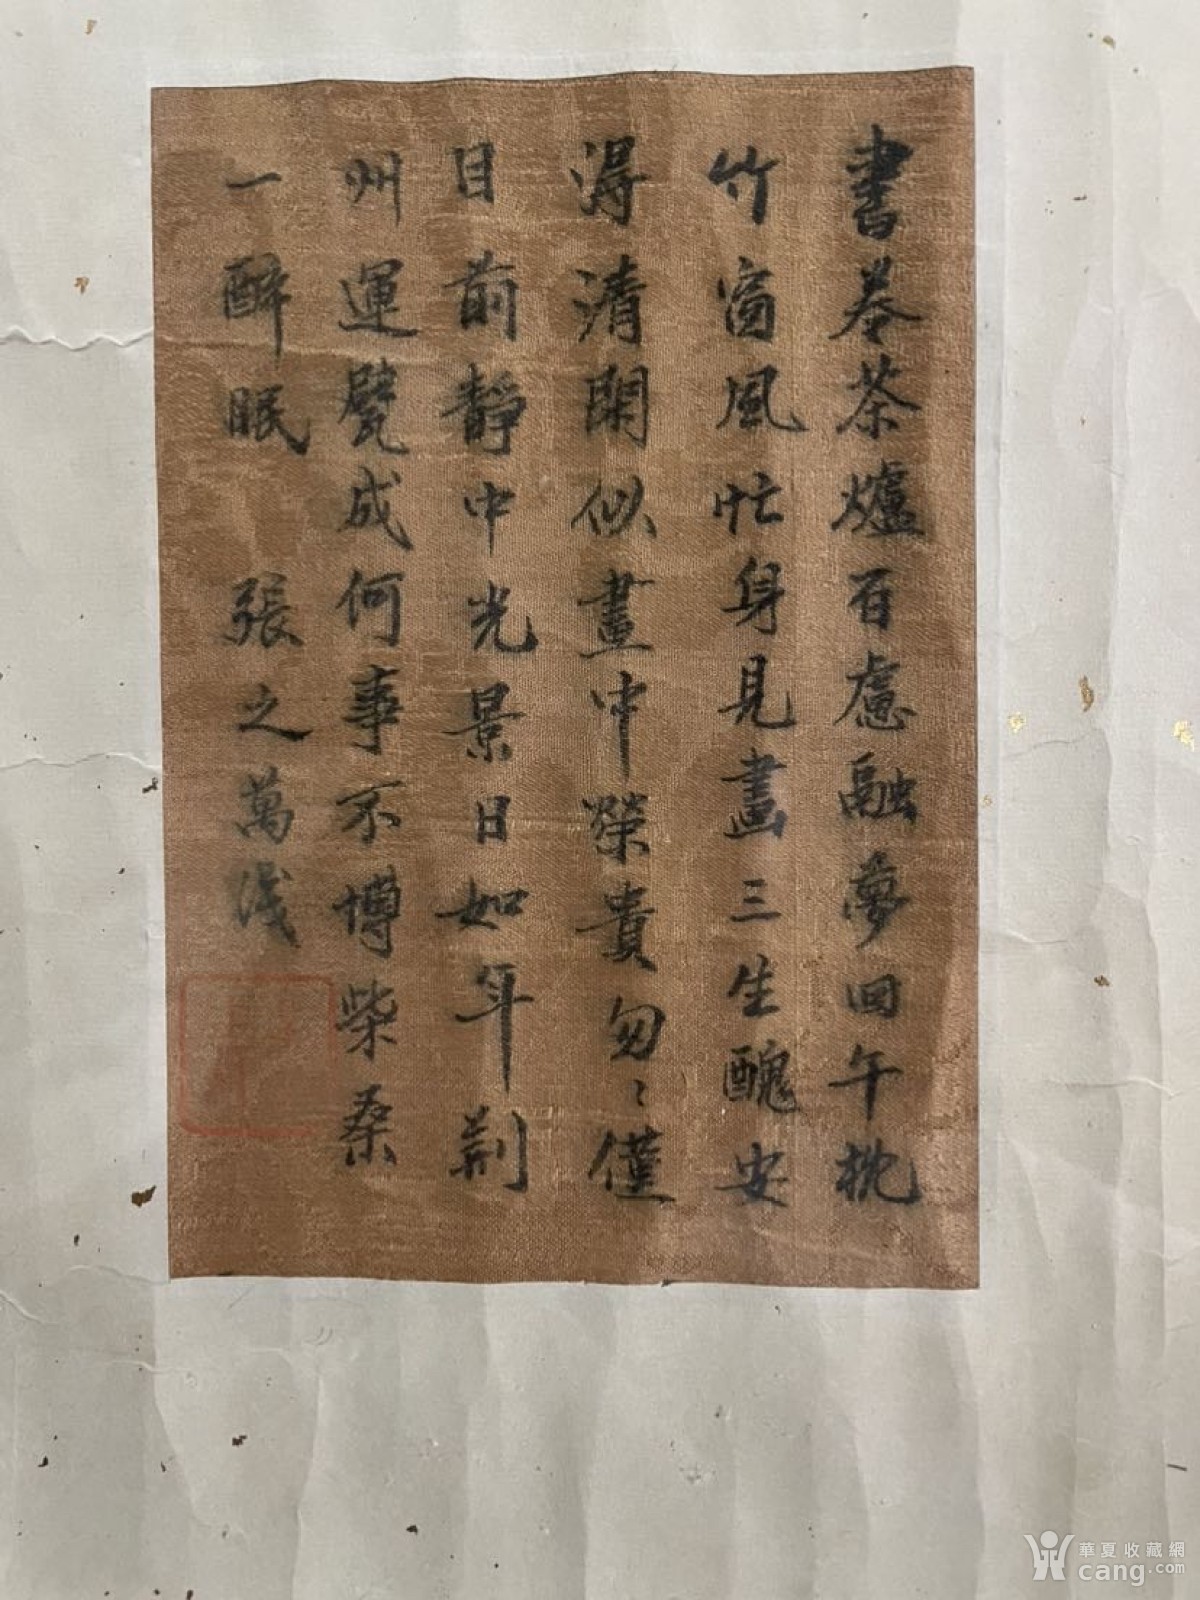 書卷茶爐百慮融夢回午枕
竹窗風忙身見畫三生醜安
得清閑似畫中榮貴勿〻僅
目前靜中光景日如年荊
州運甓成何事不博柴桑
一醉眠 張之萬淺
華夏收藏網
cang.com